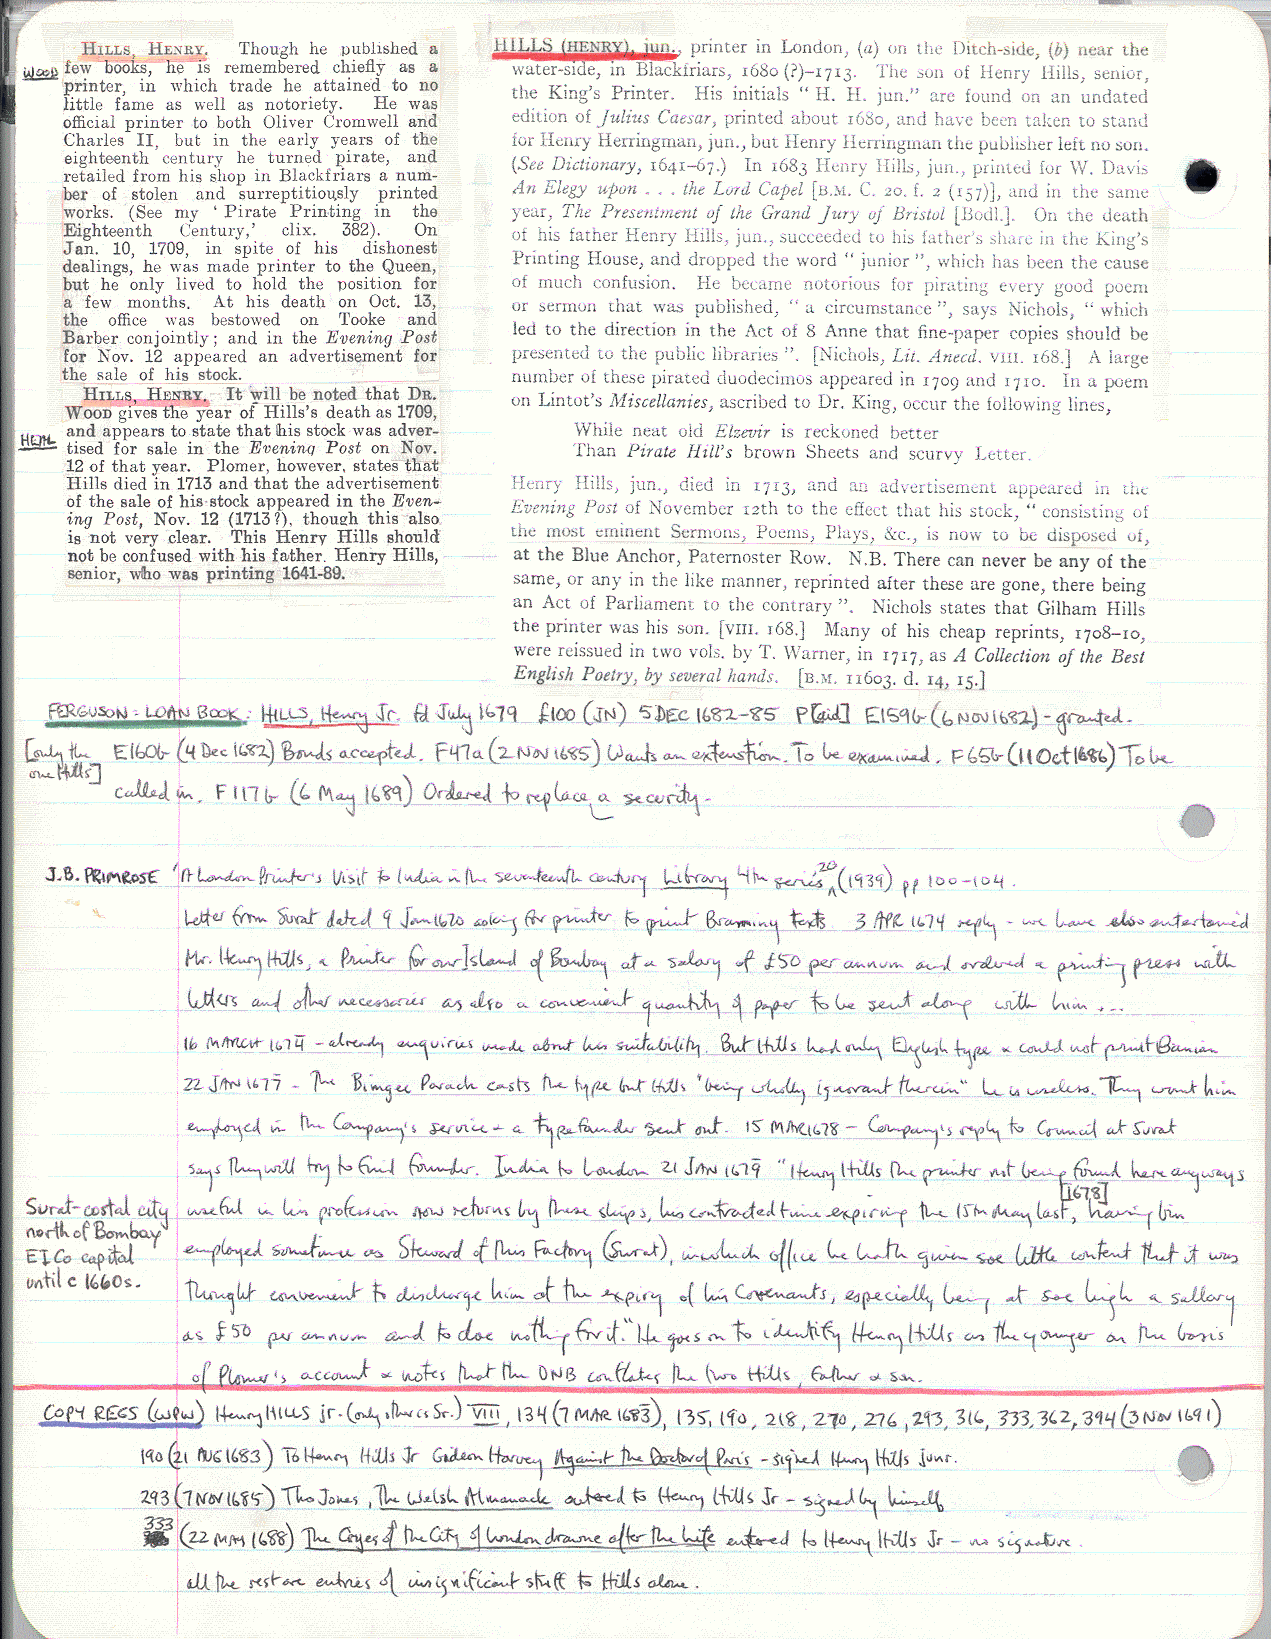 WOOD
HILLS, HENRY. Though he published a
few books, he is remembered chiefly as a
printer, in which trade he attained to no
little fame as well as notoriety. He was
official printer to both Oliver Cromwell and
Charles II, but in the early years of the
eighteenth century he turned pirate, and
retailed from his shop in Blackfriars a num-
ber of stolen and surreptitiously printed
works. (See my ' Pirate Printing in the
Eighteenth Century,' clix. 382). On
Jan. 10, 1709, in spite of his dishonest
dealings, he was made printer to the Queen,
but he only lived to hold the position for
a few months. At his death on Oct. 13,
the office was bestowed on Tooke and
Barber conjointly; and in the Evening Post
for Nov. 12 appeared an advertisement for
the sale of his stock.
HILLS, HENRY. It will be noted that DR.
WOOD gives the year of Hills's death as 1709,
and appears to state that his stock was adver-
tised for sale in the Evening Post on Nov.
12 of that year. Plomer, however, states that
Hills died in 1713 and that the advertisement
of the sale of his stock appeared in the Even-
ing Post, Nov. 12 (1713?), though this also
is not very clear. This Henry Hills should
not be confused with his father, Henry Hills,
senior, who was printing 1641-89.
HILLS (HENRY), jun., printer in London, (a) on the Ditch-side, (b) near the
water-side, in Blackfriars, 1680 (?)–1713. The son of Henry Hills, senior,
the King's Printer. His initials " H. H. jun." are found on an undated
edition of Julius Caesar, printed about 1680, and have been taken to stand
for Henry Herringman, jun., but Henry Herringman the publisher left no son.
(See Dictionary, 1641–67.) In 1683 Henry Hills, jun., printed for W. Davis
An Elegy upon . . . the Lord Capel [B.M. C. 20. f. 2 (157)], and in the same
year, The Presentment of the Grand Jury of Bristol [Bodl.]. On the death
of his father Henry Hills, jun., succeeded to his father's share in the King's
Printing House, and dropped the word " junior ", which has been the cause
of much confusion. He became notorious for pirating every good poem
or sermon that was published, " a circumstance ", says Nichols, " which
led to the direction in the Act of 8 Anne that fine-paper copies should be
presented to the public libraries ". [Nichols, Lit. Anecd. VIII. 168.] A large
number of these pirated duodecimos appeared in 1709 and 1710. In a poem
on Lintot's Miscellanies, ascribed to Dr. King, occur the following lines,
While neat old Elzevir is reckoned better
Than Pirate Hill's brown Sheets and scurvy Letter.
Henry Hills, jun., died in 1713, and an advertisement appeared in the
Evening Post of November 12th to the effect that his stock, " consisting of
the most eminent Sermons, Poems, Plays, &c., is now to be disposed of,
at the Blue Anchor, Paternoster Row. N.B. There can never be any of the
same, or any in the like manner, reprinted after these are gone, there being
an Act of Parliament to the contrary ". Nichols states that Gilham Hills
the printer was his son. [VIII. 168.] Many of his cheap reprints, 1708–10,
were reissued in two vols. by T. Warner, in 1717, as A Collection of the Best
English Poetry, by several hands. [B.M. 11603. d. 14, 15.]
FERGUSON: LOAN BOOK: HILLS, Henry Jr. fd July 1679 £100 (JN) 5 DEC 1682-85 P[aid] E159b (6 NOV 1682) - granted.
[only the one Hills] E160b (4 Dec 1682) Bonds accepted. F47a (2 NOV 1685) Wants an extenstion. To be examined. F65b (11 Oct 1686) To be
called in. F117b (6 May 1689) Ordered to replace a security.
J.B. PRIMROSE 'A London Printer's Visit to India in the seventeenth century Library 4th series 20 (1939) pp 100-104.
Letter from Surat dated 9 Jan 1670 asking for printer to print Braminy texts. 3 APR 1674 reply - we have also entertained
Mr. Henry Hills, a Printer for our Island of Bombay at a salary of £50 per annum and ordered a printing press with
letters and other necessaries as also a convenient quantity of paper to be sent along with him ....
16 MARCH 1674 - already enquiries made about his suitability. But Hills had only English type & could not print Banian
22 JAN 1677 - The Bimgee Parack casts the type but Hills "being wholly ignorant therein" he is useless. They want him
employed in the Company's service - a typefounder sent out. 15 MAR 1678 - Company's reply to Council at Surat
says they will try to find founder. India to London 21 JAN 1679 "Henry Hills the printer not being found here anyways
useful in his profession now returns by these ships, his contracted time expiring the 15th May last [1678], having bin
employed sometime as Steward of this Factory (Surat), in which office he hath given soe little content that it was
thought convenient to discharge him at the expiry of his Covenants, especially being at soe high a sallary
as £50 per annum and to doe nothing for it." He goes on to identify Henry Hills as the younger on the basis
of Plomer's account & notes that the DNB conflates the two Hills, father & son.
Surat-costal city
north of Bombay
EICo capital
until c 1660s.
COPY REGS (WPW) Henry HILLS jr. (only other is Sr.) VIII, 134 (7 MAR 1683), 135, 190, 218, 270, 276, 293, 316, 333, 362, 394 (3 NOV 1691)
190 (21 AUG 1683) To Henry Hills Jr Gideon Harvey Against the Doctor of Paris - signed Henry Hills junr.
293 (7 NOV 1685) Tho Jones, The Welsh Almanack entered to Henry Hills Jr - signed by himself
333 (22 MAY 1688) The Cryes of the City of London drawne after the Life entered to Henry Hills Jr - no signature.
all the rest are entries of insignificant stuff to Hills alone.